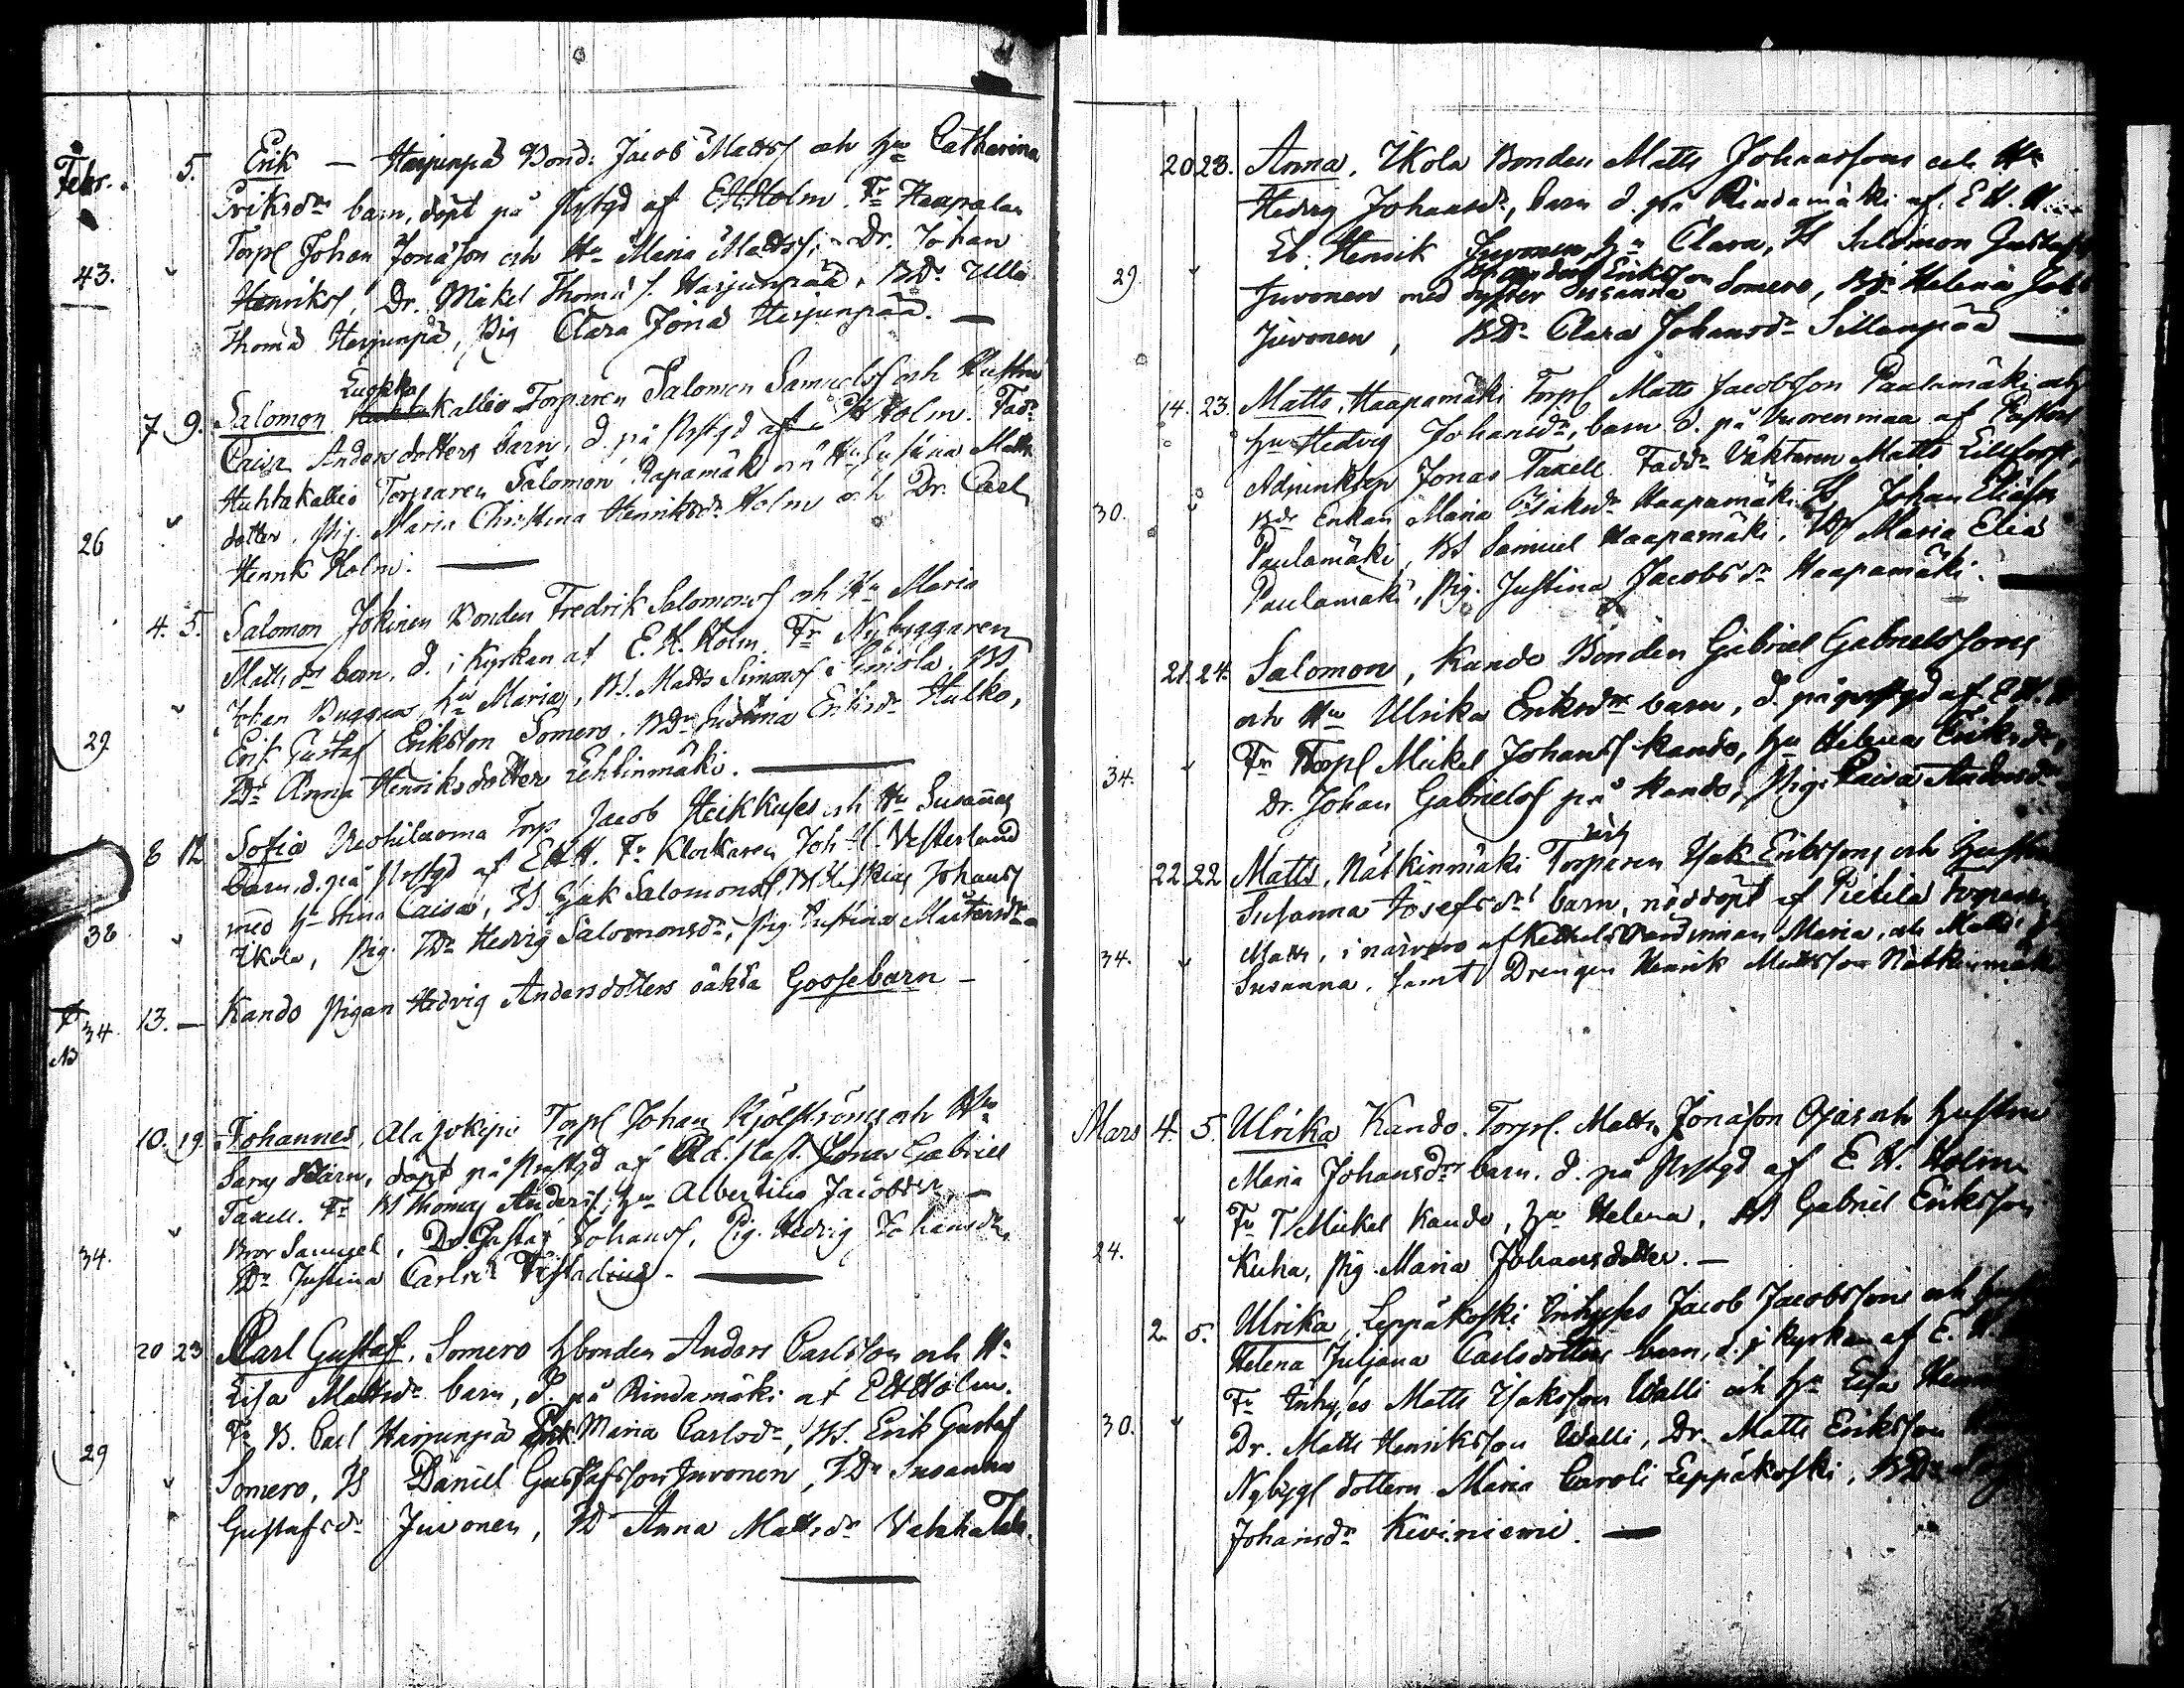 Febr. 5. Erik — Harjunpä Bond: Jacob Matts och hu Catharina
Eriksdrs barn, döpt på Prstgd af EHHolm. Fr Haapalan
Torp Johan Jonason och Hu Maria Matts, Dr. Johan
43. Henriks, Dr. Mikel Thomas Harjunpää, BDr. Ulla
Thomä Harjunpä, Pig Clara Jona Harjunpää. —
Luopka
7 9. Salomon kallio Torparen Salomon Samuels och Hustru
Caisa Andersdotters barn, d. på Prstgd af Holm. Fad:
Huhtakallio Torparen Salomon Rapamäki och Hu Susana Matts
26 dotter, Pig. Maria Christina Henriksdr Holm och Dr. Carl
Henrik Holm. —
4. 5. Salomon Jokinen Bonden Fredrik Salomons och Hu Maria
Mattsdrs barn, d. i Kyrkan af E.H. Holm. Fr Nybyggaren
Johan Buggas hu Maria, BS. Matts Simons BS
29 Erik Gustaf Erikson Somero. BDr Justina Eriksdr Hulko,
BDr Anna Henriksdotter Lehtinmäki. —
8 12 Sofia Torp Jacob Heikkuses och Hu Susannas
barn, d. på Prstgd af EHH. Fr Klockaren Joh. Vesterlund
med hu Stina Caisa, BS Isak Salomons, Johans
38 Ikola, Pig. BDr Hedvig Salomonsdr, Pig Justina Mårtensdr
34. 13. — Kando Pigan Hedvig Andersdotters oäkta Gossebarn —
NB
10. 19. Johannes, Alajokipi Torp Johan Kjölströms och Hu
Saras barn, döpt på Prstgd af Ad. Past. Jonas Gabriel
Taxell. Fr BS Thomas Anders, hu Albertina Jacobsdr, —
Bror Samuel, Dr. Gustaf Johans, Pig. Hedvig Johansdr,
34. BDr Justina Carlsdr —
20 23 Carl Gustaf, Somero bonden Anders Carlsson och Hu
Lisa Mattsdr barn, d. på Rindamäki af EHHolm.
Fr B. Carl Harjunpä Maria Carlsdr, BS. Erik Gustaf
29 Somero, BS Daniel Gustafsson Juvonen, BDr Susanna
Gustafsdr Juvonen, BD Anna Mattsdr —
20 23. Anna, Ikola Bonden Matts Johanssons och Hu
Hedvig Johansdr, barn d. på Rindamäki af. E H. H
Henrik Juvonen, hu Clara, BS Salomon Gustafs
29. Eriksson
Juvonen med syster Susanna Somero, BDr Helena Joh
Juvonen, BDr Clara Johansdr Sillanpää —
14. 23. Matts, Haapamäki Torp Matts Jacobsson Paulamäki och
hu Hedvig Johansdr, barn d. på Vuorenmaa af Pastors
Adjunkten Jonas Taxell. Faddr Väktaren Matts Lilltorp,
30. Enkan Maria Isaksdr Haapamäki, BS Johan Eliasson
Paulamäki, BS Samuel Haapamäki, BDr Maria Elia
Paulamäki, Pig. Justina Jacobsdr Haapamäki. —
21. 24. Salomon, Kando Bonden Gabriel Gabrielssons
och Hu Ulrika Eriksdrs barn, d. på prstgd af E H. H
34. Fr Torp Mickel Johans Kando, hu Helena Eriksdr,
Dr. Johan Gabriels på Kando, Pig. Caisa Andersdr
22. 22 Matts, Nätkinmäki Torparen Isak Erikssons och hustru
Susanna Josefsdrs barn, nöddöpt af Pietilä Torparen
34. Matts, i närvaro af Värdinnan Maria, och Matts
Susanna, samt Drengen Henrik Mattsson Nätkinmäki
Mars 4. 5. Ulrika Kando. Torp. Matts Jonason Ojas och hustru
Maria Johansdrs barn. d. på Prstgd af E H. Holm
Fr T Mickel Kando, hu Helena, BS Gabriel Eriksson
24. Kuha, Pig Maria Johansdotter. —
2. 5. Ulrika, Leppäkoski Inhyses Jacob Jacobssons och hust
Helena Juljana Carlsdotters barn, d. i Kyrkan af E. H.
Fr Inhyses Matts Isaksson Walli och hu Lisa
30. Dr. Matts Henriksson Walli, Dr. Matts Eriksson
Nybyg dottern Maria Caroli Leppäkoski, BDr
Johansdr Kiviniemi. —